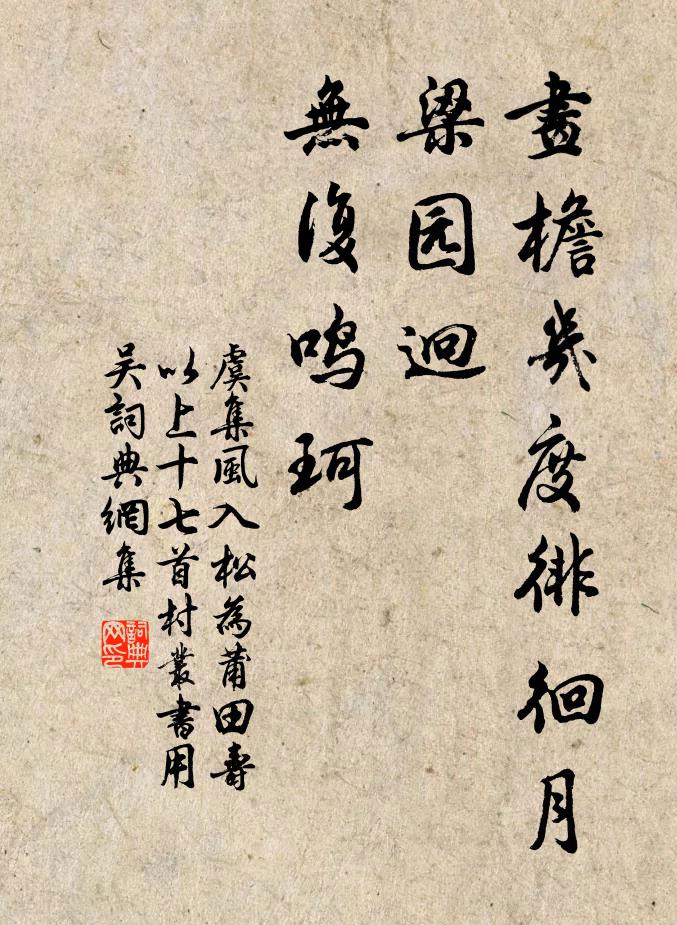 畫檐幾度徘徊月
梁园迴
無復鳴珂
虞集風入松為莆田壽
以上十七首村叢書用
吴詞典網集
詞典網印